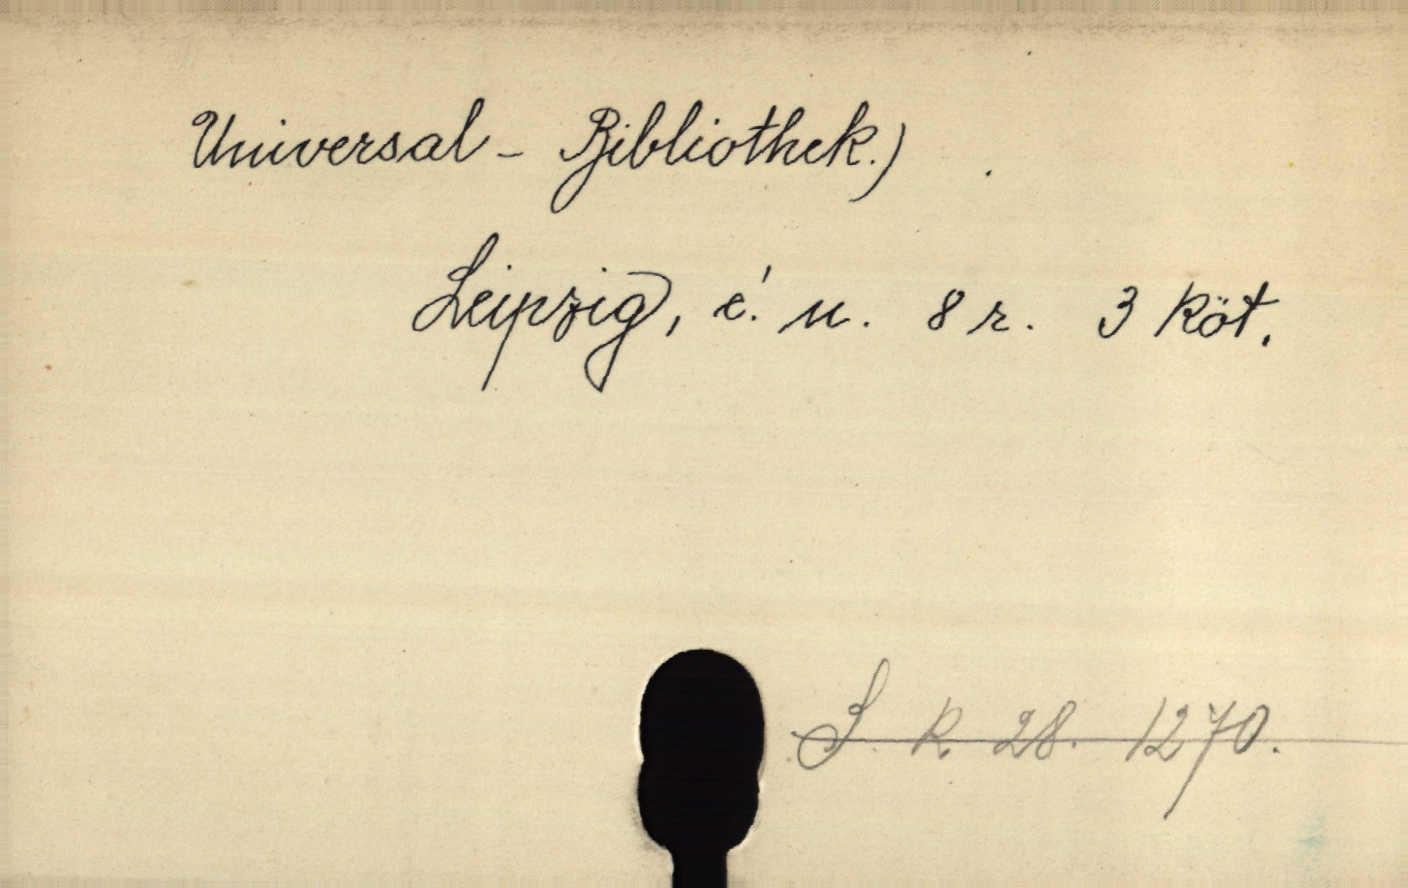 Universal - Bibliothek.)
Leipzig, é. n. 8 r. 3 köt.
S. k. 28. 1270.